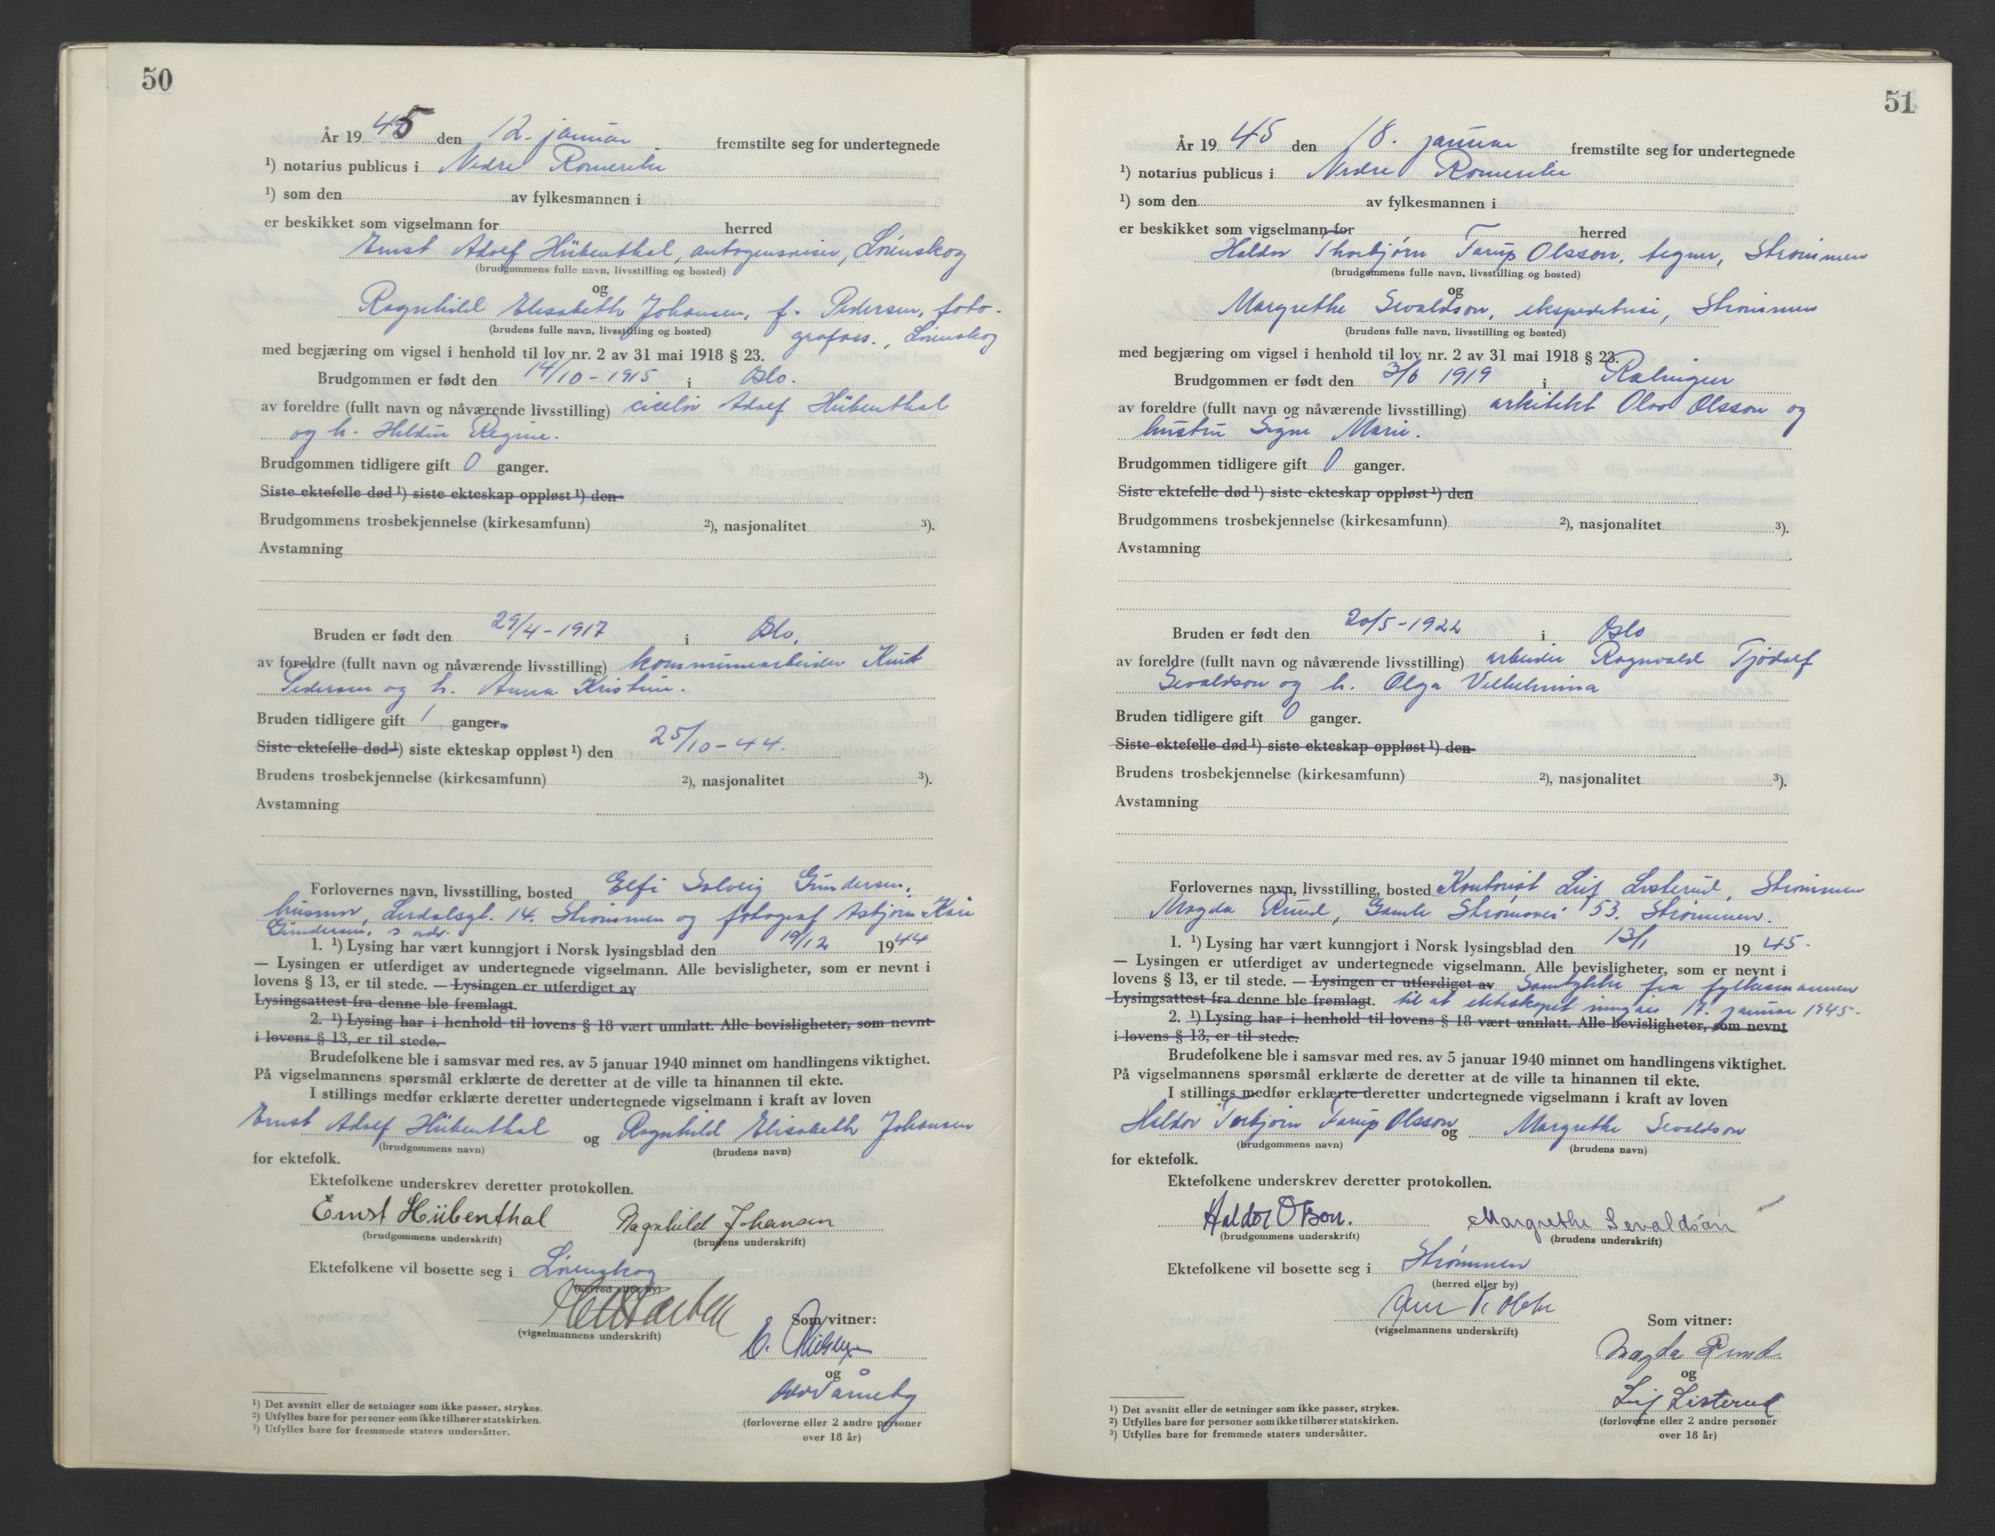 50
År 1945 den 12. januar fremstilte seg for undertegnede
¹) notarius publicus i Nedre Romerike
¹) som den av fylkesmannen i
er beskikket som vigselmann for herred
Ernst Adolf Hübenthal, autogensveiser, Lörenskog
(brudgommens fulle navn, livsstilling og bosted)
og
Ragnhild Elisabeth Johansen, f. Pedersen, foto-
(brudens fulle navn, livsstilling og bosted) grafass., Lörenskog
med begjæring om vigsel i henhold til lov nr. 2 av 31 mai 1918 § 23.
Brudgommen er født den 14/10-1915 i Oslo.
av foreldre (fullt navn og nåværende livsstilling) ciselör Adolf Hübenthal
og h. Hildur Regine.
Brudgommen tidligere gift 0 ganger.
Siste ektefelle død ¹) siste ekteskap oppløst ¹) den
Brudgommens trosbekjennelse (kirkesamfunn) ²), nasjonalitet ³).
Avstamning
Bruden er født den 29/4-1917 i Oslo.
av foreldre (fullt navn og nåværende livsstilling) kommunearbeider Knut
Pedersen og h. Anna Kristine.
Bruden tidligere gift 1 ganger.
Siste ektefelle død ¹) siste ekteskap oppløst ¹) den 25/10-44.
Brudens trosbekjennelse (kirkesamfunn) ²), nasjonalitet ³).
Avstamning
Forlovernes navn, livsstilling, bosted Elfi Solveig Gundersen,
husmor, Lerdalsgt. 14. Strömmen og fotograf Asbjørn Kåre
Gundersen, s. adr.
1. ¹) Lysing har vært kunngjort i Norsk lysingsblad den 19/12 1944
— Lysingen er utferdiget av undertegnede vigselmann. Alle bevisligheter, som er nevnt i
lovens § 13, er til stede. — Lysingen er utferdiget av
Lysingsattest fra denne ble fremlagt.
2. ¹) Lysing har i henhold til lovens § 18 vært unnlatt. Alle bevisligheter, som nevnt
i lovens § 13, er til stede.
Brudefolkene ble i samsvar med res. av 5 januar 1940 minnet om handlingens viktighet.
På vigselmannens spørsmål erklærte de deretter at de ville ta hinannen til ekte.
I stillings medfør erklærte deretter undertegnede vigselmann i kraft av loven
Ernst Adolf Hübenthal og Ragnhild Elisabeth Johansen
(brudgommens navn) (brudens navn)
for ektefolk.
Ektefolkene underskrev deretter protokollen.
Ernst Hübenthal Ragnhild Johansen
(brudgommens underskrift) (brudens underskrift)
Ektefolkene vil bosette seg i Lörenskog
(herred eller by)
Som vitner:
(vigselmannens underskrift)
og
(forloverne eller 2 andre personer
over 18 år)
¹) Det avsnitt eller de setninger som ikke passer, strykes.
²) Utfylles bare for personer som ikke tilhører statskirken.
³) Utfylles bare for fremmede staters undersåtter.
51
År 1945 den 18. januar fremstilte seg for undertegnede
¹) notarius publicus i Nedre Romerike
¹) som den av fylkesmannen i
er beskikket som vigselmann for herred
Haldor Thorbjørn Tarup Olsson, tegner, Strømmen
(brudgommens fulle navn, livsstilling og bosted)
og
Margrethe Sevaldson, ekspeditrise, Strømmen
(brudens fulle navn, livsstilling og bosted)
med begjæring om vigsel i henhold til lov nr. 2 av 31 mai 1918 § 23.
Brudgommen er født den 3/6 1919 i Rælingen
av foreldre (fullt navn og nåværende livsstilling) arkitekt Olov Olsson og
hustru Signe Marie.
Brudgommen tidligere gift 0 ganger.
Siste ektefelle død ¹) siste ekteskap oppløst ¹) den
Brudgommens trosbekjennelse (kirkesamfunn) ²), nasjonalitet ³).
Avstamning
Bruden er født den 20/5-1922 i Oslo
av foreldre (fullt navn og nåværende livsstilling) arbeider Ragnvald Tjodolf
Sevaldson og h. Olga Vilhelmina
Bruden tidligere gift 0 ganger.
Siste ektefelle død ¹) siste ekteskap oppløst ¹) den
Brudens trosbekjennelse (kirkesamfunn) ²), nasjonalitet ³).
Avstamning
Forlovernes navn, livsstilling, bosted Kontorist Leif Listerud, Strømmen
Magda Rund, Gamle Strømsvei 53. Strømmen.
1. ¹) Lysing har vært kunngjort i Norsk lysingsblad den 13/1 1945.
— Lysingen er utferdiget av undertegnede vigselmann. Alle bevisligheter, som er nevnt i
lovens § 13, er til stede. — Lysingen er utferdiget av Samtykke fra fylkesmannen
Lysingsattest fra denne ble fremlagt. til at ekteskapet inngåes 17. januar 1945.
2. ¹) Lysing har i henhold til lovens § 18 vært unnlatt. Alle bevisligheter, som nevnt
i lovens § 13, er til stede.
Brudefolkene ble i samsvar med res. av 5 januar 1940 minnet om handlingens viktighet.
På vigselmannens spørsmål erklærte de deretter at de ville ta hinannen til ekte.
I stillings medfør erklærte deretter undertegnede vigselmann i kraft av loven
Haldor Torbjørn Tarup Olsson og Margrethe Sevaldson
(brudgommens navn) (brudens navn)
for ektefolk.
Ektefolkene underskrev deretter protokollen.
Haldor Olsson. Margrethe Sevaldson
(brudgommens underskrift) (brudens underskrift)
Ektefolkene vil bosette seg i Strømmen
(herred eller by)
Som vitner:
(vigselmannens underskrift)
Magda Rund.
og
Leif Listerud
(forloverne eller 2 andre personer
over 18 år)
¹) Det avsnitt eller de setninger som ikke passer, strykes.
²) Utfylles bare for personer som ikke tilhører statskirken.
³) Utfylles bare for fremmede staters undersåtter.